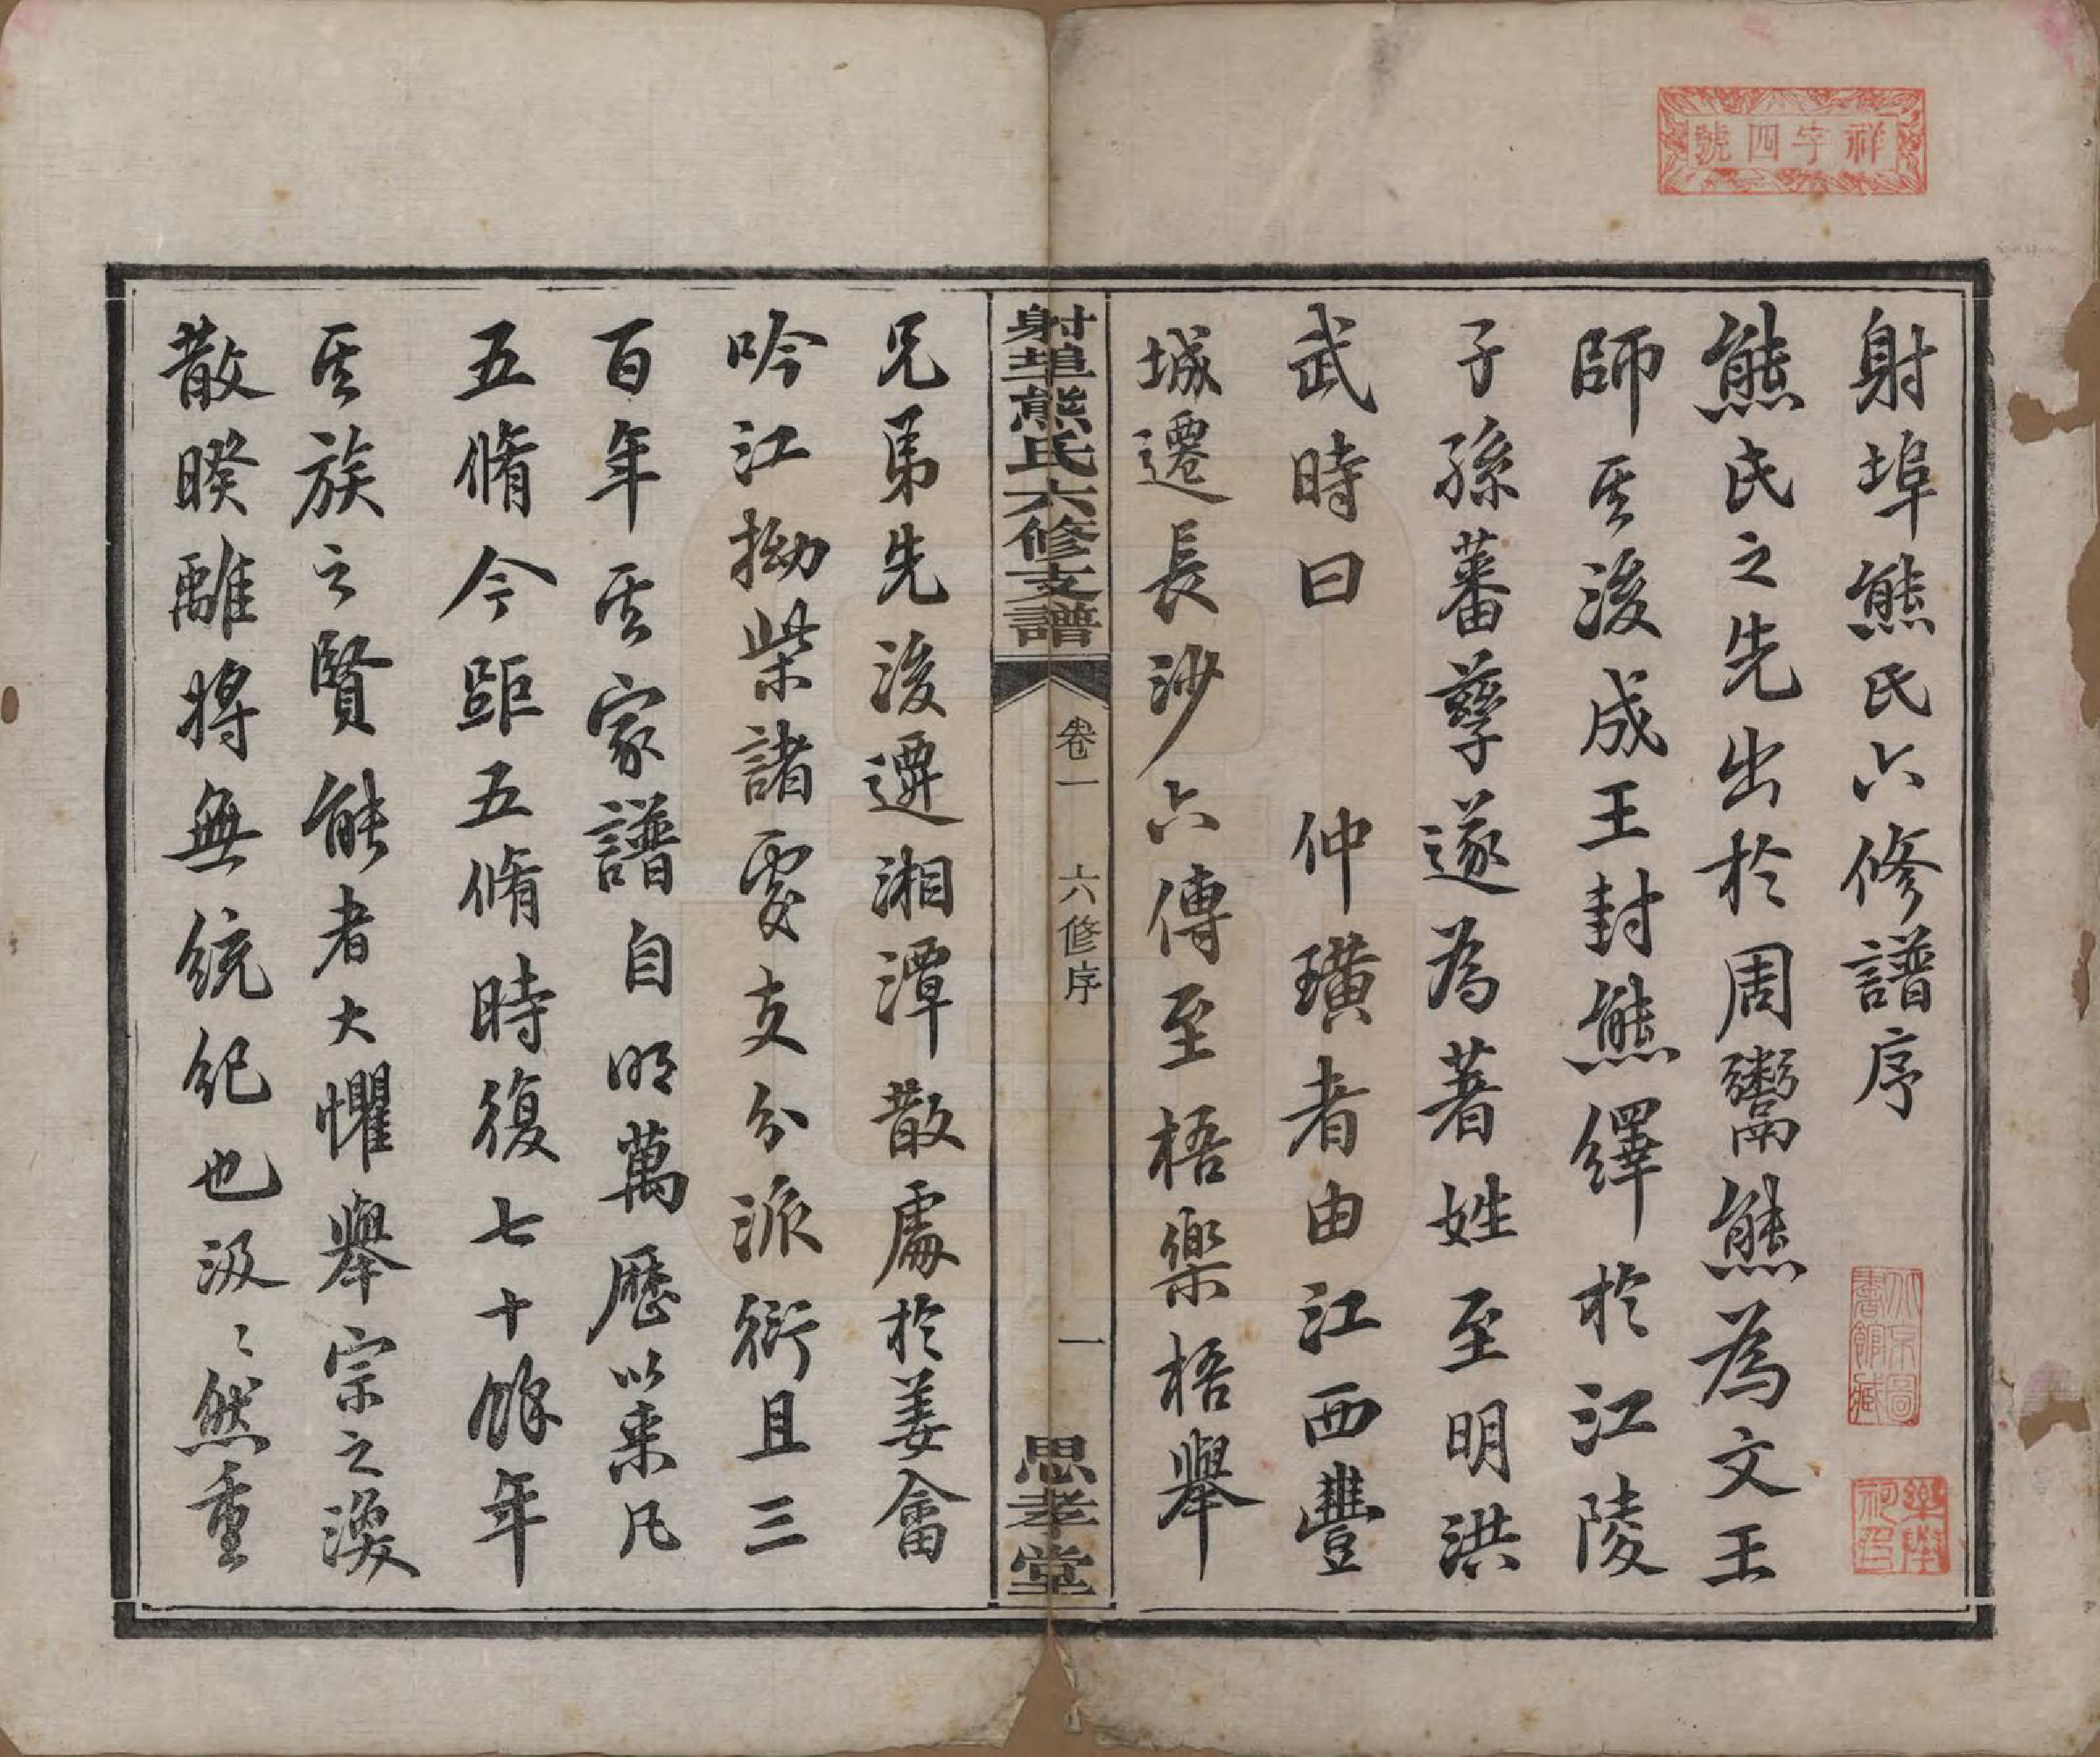 祥字四號
射埠熊氏六修譜序
熊氏之先出於周鬻熊為文王
師其後成王封熊繹於江陵
子孫蕃孽遂為著姓至明洪
武時曰 仲璜者由江西豐
城遷長沙六傳至梧樂梧舉
射埠熊氏六修支譜
卷一 六修序 一
思孝堂
兄弟先後遷湘潭散處於姜畬
吟江拗柴諸處支分派衍且三
百年其家譜自明萬歷以來凡
五脩今距五脩時復七十餘年
其族之賢能者大懼舉宗之渙
散暌離將無統紀也汲〻然重